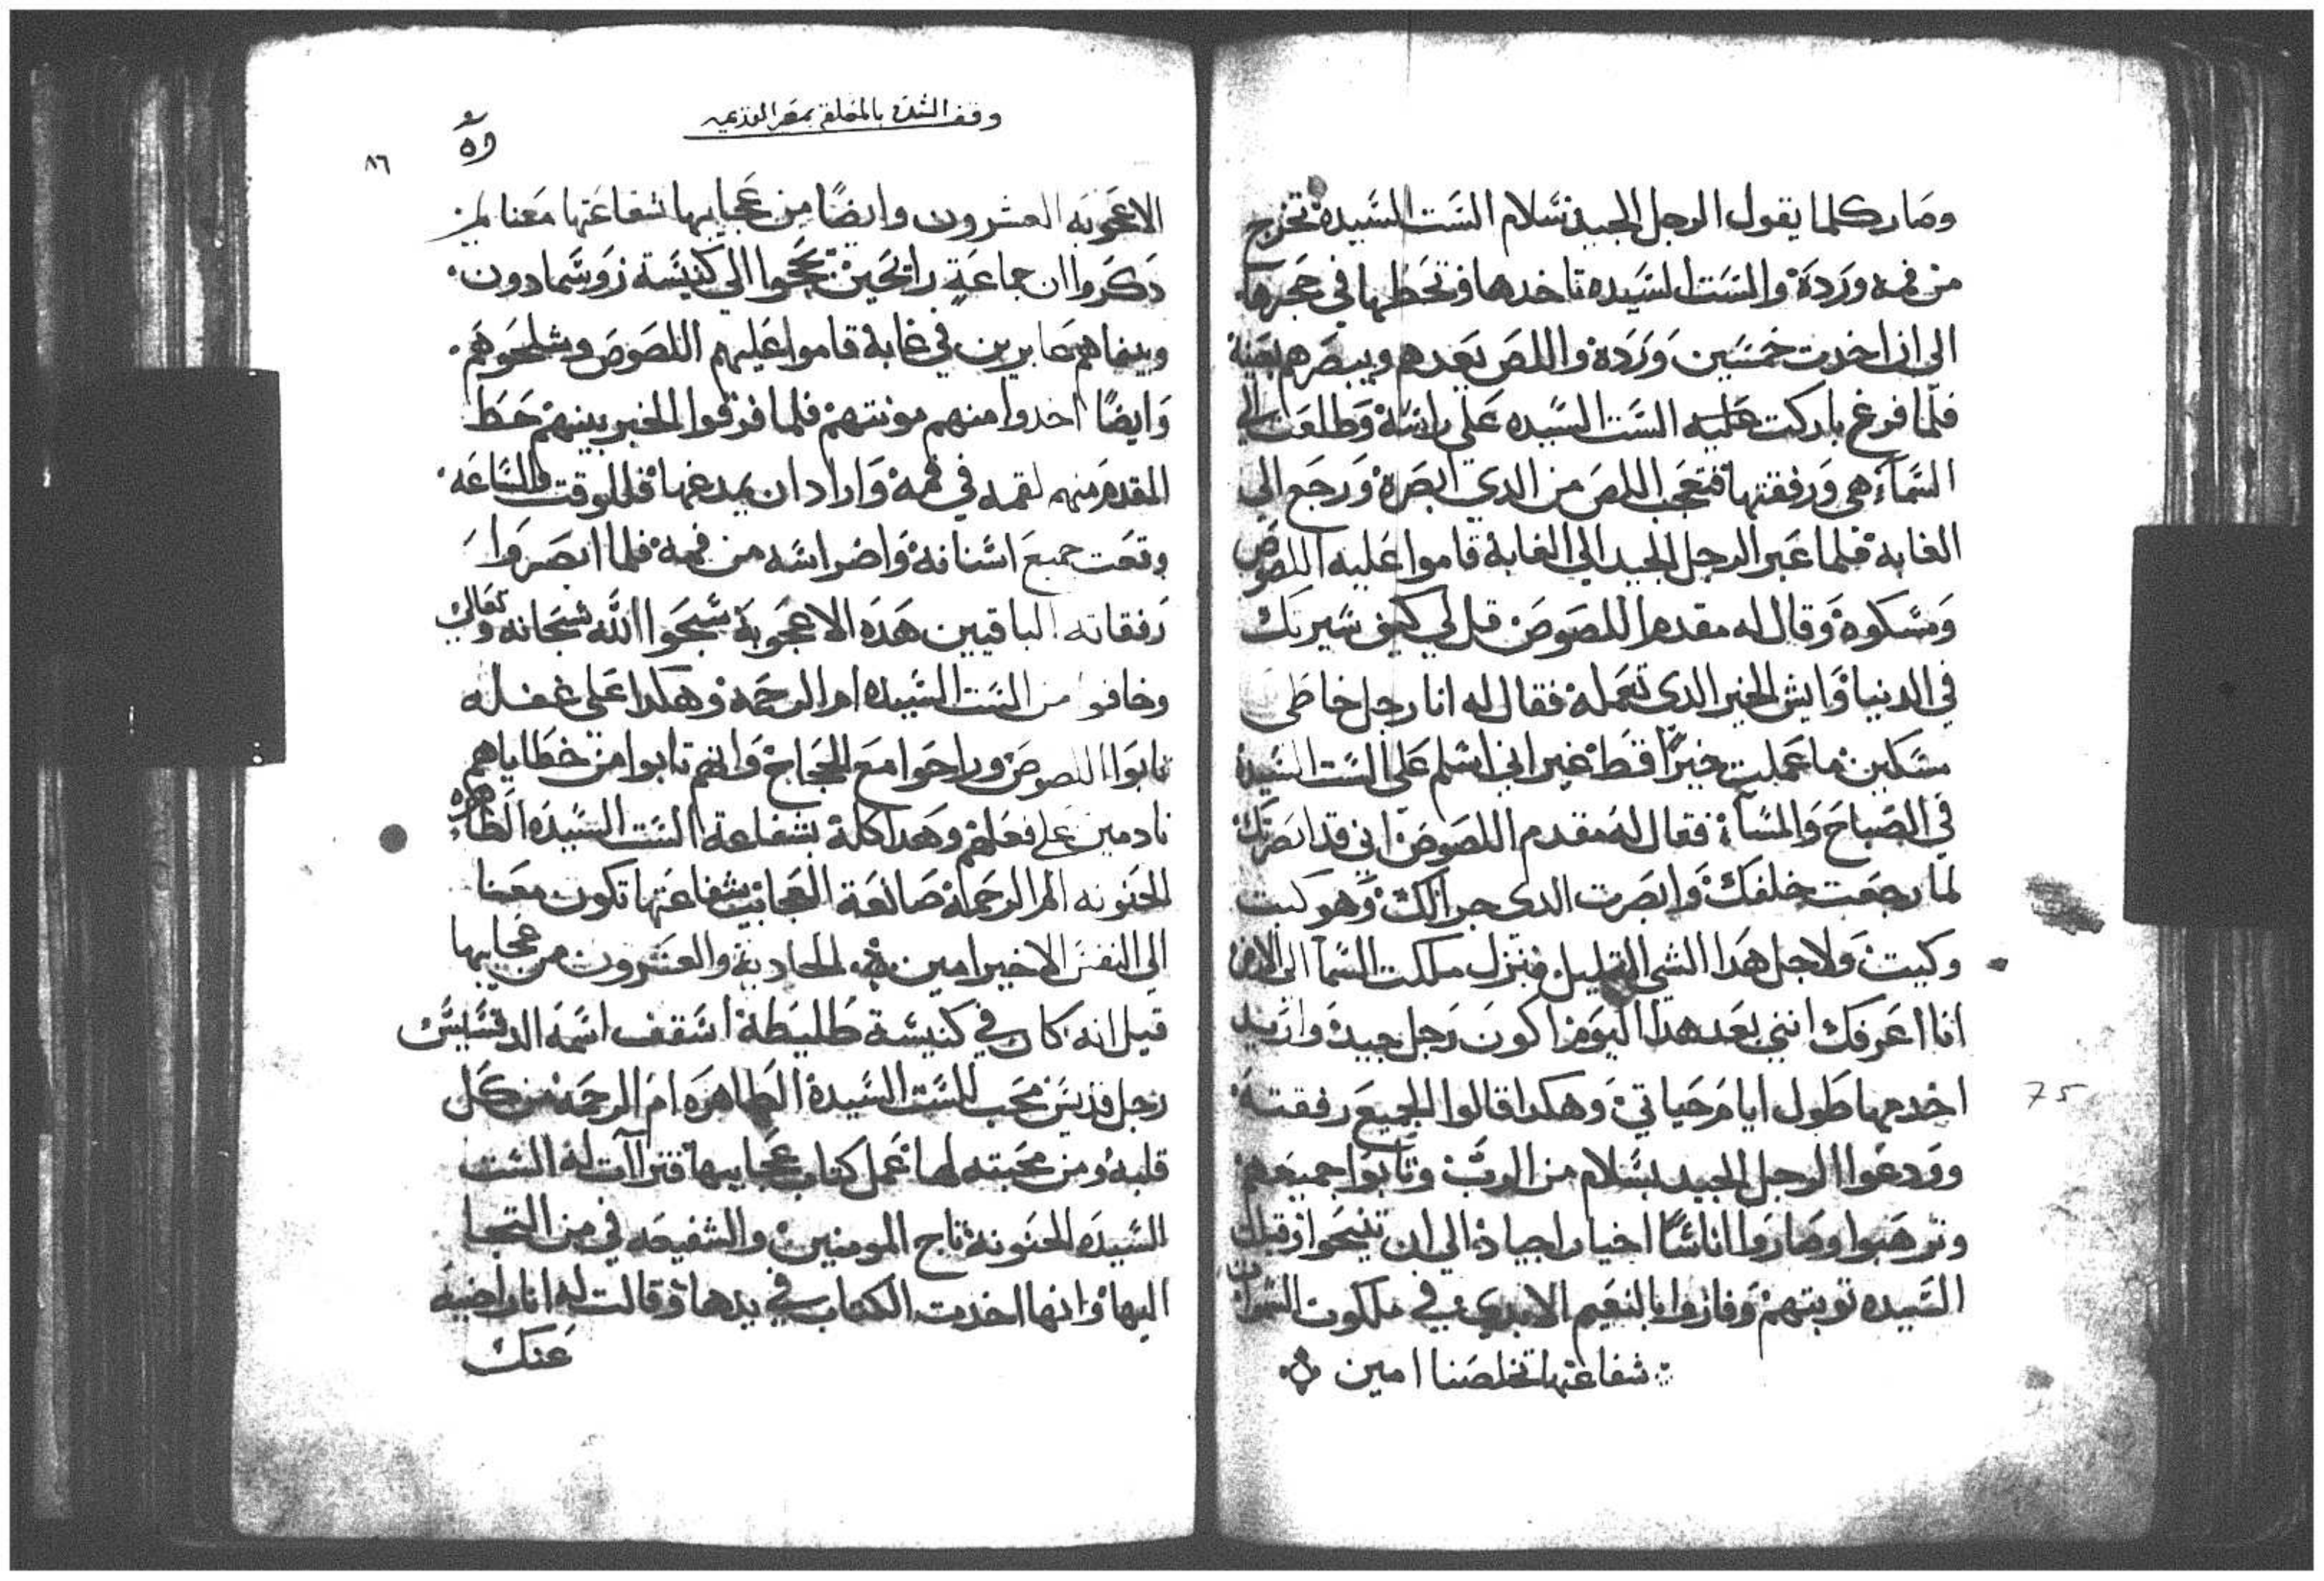 وصار كلما يقول الرجل الجيد سلام الست السيده تخرج
من فمه وردة والست السيده تاخدها وتحطها في حجرها
الى ان اخدت خمسين وردة واللص يعدهم ويبصرهم بعينه
فلما فرغ باركت عليه الست السيده على راسه وطلعت الي
السماء هي ورفقتها فتعجب اللص من الدي ابصره ورجع الى
الغابة فلما عبر الرجل الجيد الي الغابة قاموا عليه اللصوص
ومسكوه وقال له مقدم اللصوص قل لي كيف سيرتك
في الدنيا وايش الخير الدي تعمله فقال له انا رجل خاطى
مسكين ما عملت خيرا قط غير اني اسلم على الست السيدة
في الصباح والمساء فقال له مقدم اللصوص اني قد ابصرتك
لما رجعت خلفك وابصرت الدي جرالك وهو كيت
وكيت ولاجل هدا الشي القليل منزل ملكت السما الى الارض
انا اعرفك انني بعد هدا اليوم اكون رجل جيد واريد
اخدمها طول ايام حياتي وهكدا قالوا الجميع رفقته
وودعوا الرجل الجيد بسلام من الرب وتابوا جميعهم
وترهبوا وصاروا اناسا اخيار اجياد الي ان تنيحوا وقبلت
السيده توبتهم وفازوا بالنعيم الابدي في ملكوت السموات
شفاعتها تخلصنا امين
وقف السده بالمعلقه بمصر القديمه
٨٦
الاعجوبه العشرون وايضا من عجايبها شفاعتها معنا امين
دكروا ان جماعة رايحين يحجوا الي كنيسة زوسمادون
وبينما هم عابرين في غابة قاموا عليهم اللصوص وشلحوهم
وايضا اخدوا منهم مونتهم فلما فرقوا الخبز بينهم حط
المقدم منهم لقمه في فمه واراد ان يمدغها فللوقت والساعه
وقعت جميع اسنانه واضراسه من فمه فلما ابصروا
رفقاته الباقيين هده الاعجوبة سبحوا الله سبحانه وتعالى
وخافوا من الست السيده ام الرحمه وهكدا على غفله
تابوا اللصوص وراحوا مع الحجاج وانهم تابوا من خطاياهم
نادمين على فعلهم وهدا كله بشفاعة الست السيده الطاهره
الحنونه ام الرحمة صانعة العجايب شفاعتها تكون معنا
الى النفس الاخير امين الحادية والعشرون من عجايبها
قيل انه كان في كنيسة طليطلة اسقف اسمه الدفنسيس
رجل قديس محب للست السيدة الطاهره ام الرحمه من كل
قلبه ومن محبته لها عمل كتاب عجايبها فتراات له الست
السيده الحنونة تاج المومنين والشفيعه في من التجا
اليها وانها اخدت الكتاب في يدها وقالت له انا راضيه
عنك
75